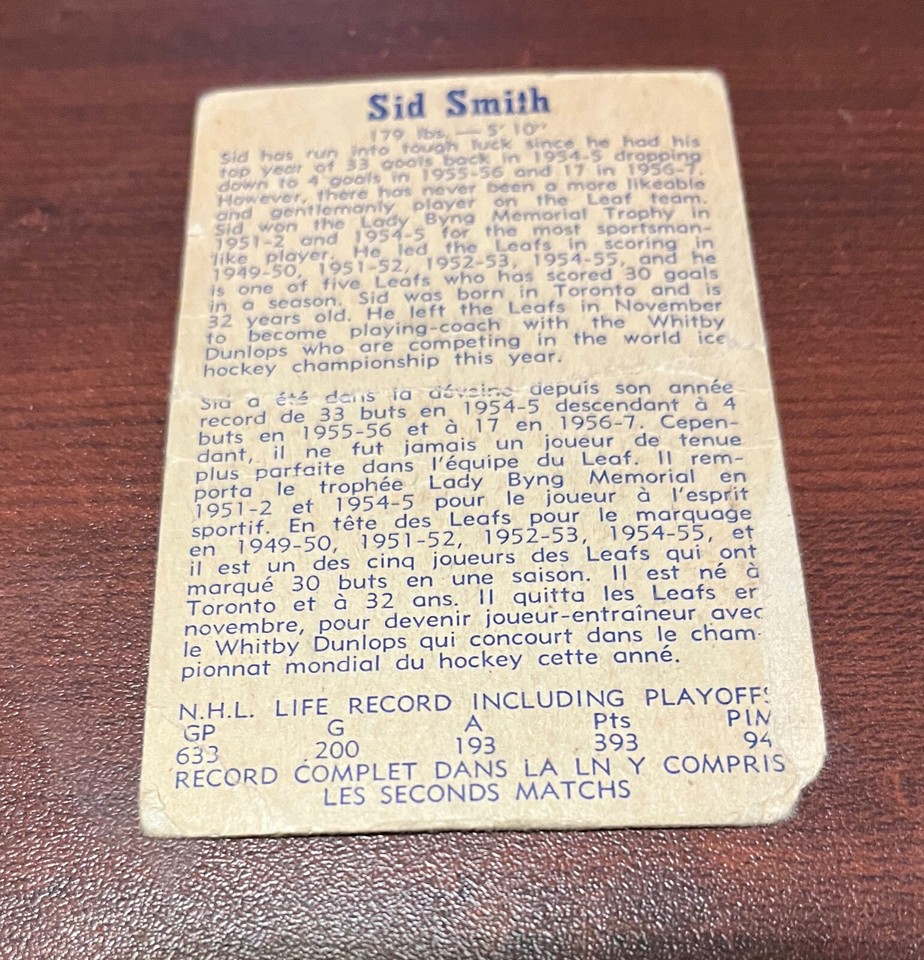 Sid Smith
179 lbs. — 5' 10"
Sid has run into tough luck since he had his
top year of 33 goals back in 1954-5 dropping
down to 4 goals in 1955-56 and 17 in 1956-7.
However, there has never been a more likeable
and gentlemanly player on the Leaf team.
Sid won the Lady Byng Memorial Trophy in
1951-2 and 1954-5 for the most sportsman-
like player. He led the Leafs in scoring in
1949-50, 1951-52, 1952-53, 1954-55, and he
is one of five Leafs who has scored 30 goals
in a season. Sid was born in Toronto and is
32 years old. He left the Leafs in November
to become playing-coach with the Whitby
Dunlops who are competing in the world ice
hockey championship this year.
Sid a été dans la déveine depuis son année
record de 33 buts en 1954-5 descendant à 4
buts en 1955-56 et à 17 en 1956-7. Cepen-
dant, il ne fut jamais un joueur de tenue
plus parfaite dans l'équipe du Leaf. Il rem-
porta le trophée Lady Byng Memorial en
1951-2 et 1954-5 pour le joueur à l'esprit
sportif. En tête des Leafs pour le marquage
en 1949-50, 1951-52, 1952-53, 1954-55, et
il est un des cinq joueurs des Leafs qui ont
marqué 30 buts en une saison. Il est né à
Toronto et à 32 ans. Il quitta les Leafs en
novembre, pour devenir joueur-entraîneur avec
le Whitby Dunlops qui concourt dans le cham-
pionnat mondial du hockey cette anné.
N.H.L. LIFE RECORD INCLUDING PLAYOFFS
GP G A Pts PIM
633 200 193 393 94
RECORD COMPLET DANS LA LN Y COMPRIS
LES SECONDS MATCHS